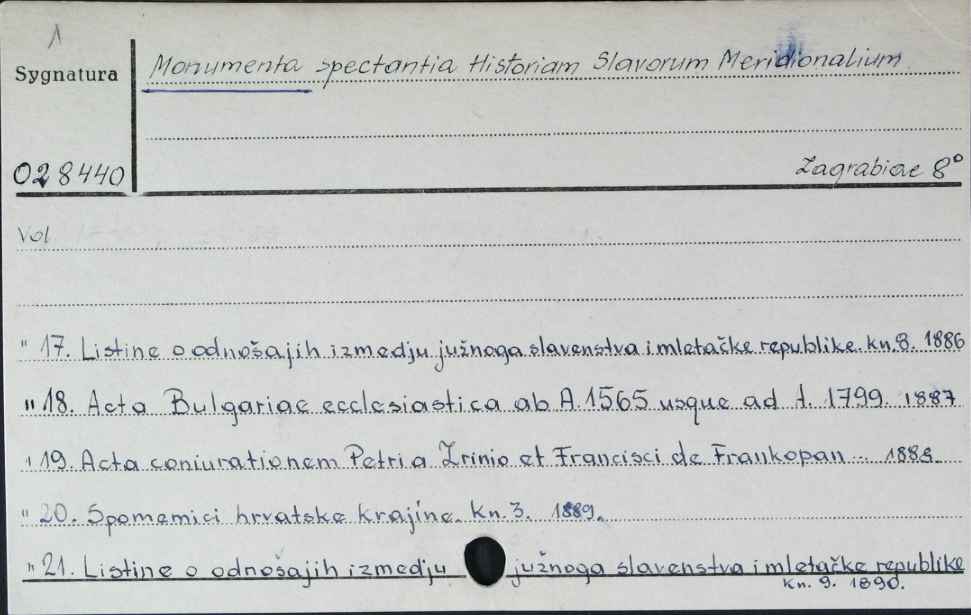 1
Sygnatura
Monumenta spectantia Historiam Slavorum Meridionalium
028440
Zagrabiae 8°
Vol
" 17. Listine o odnošajih izmedju južnoga slavenstva i mletačke republike. kn. 8. 1886
" 18. Acta Bulgariae ecclesiastica ab A. 1565 usque ad A. 1799. 1887
" 19. Acta coniurationem Petri a Zrinio et Francisci de Frankopan .. 1888.
" 20. Spomemici hrvatske krajine. kn. 3. 1889.
" 21. Listine o odnošajih izmedju južnoga slavenstva i mletačke republike
kn. 9. 1890.